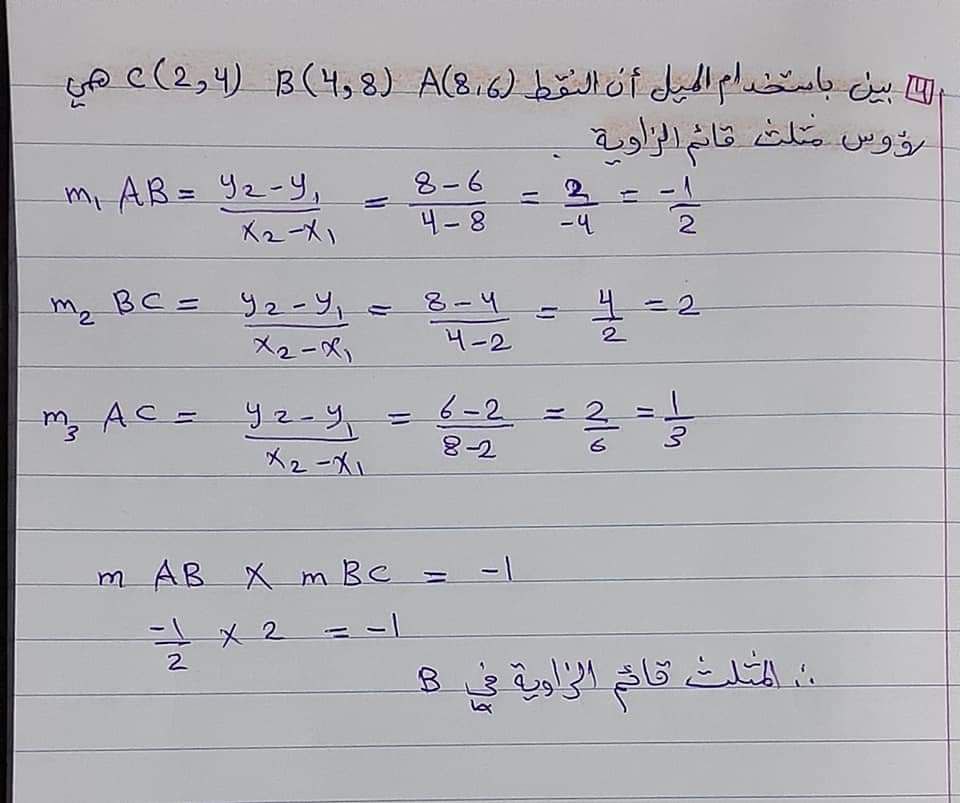 4 بين باستخدام الميل أن النقط A(8,6) B(4,8) C(2,4) هي
رؤوس مثلث قائم الزاوية .
m₁ AB = (y₂-y₁)/(x₂-x₁) = (8-6)/(4-8) = 2/-4 = -1/2
m₂ BC = (y₂-y₁)/(x₂-x₁) = (8-4)/(4-2) = 4/2 = 2
m₃ AC = (y₂-y₁)/(x₂-x₁) = (6-2)/(8-2) = 2/6 = 1/3
m AB X m BC = -1
-1/2 x 2 = -1
∴ المثلث قائم الزاوية في B